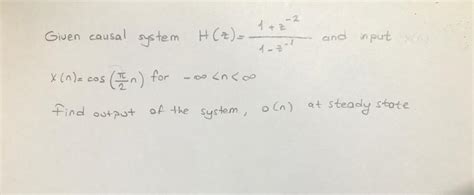 Given causal system H(z)= 1+z⁻² / 1-z⁻¹ and input
x(n)= cos(π/2 n) for -∞<n<∞
Find output of the system, o(n) at steady state